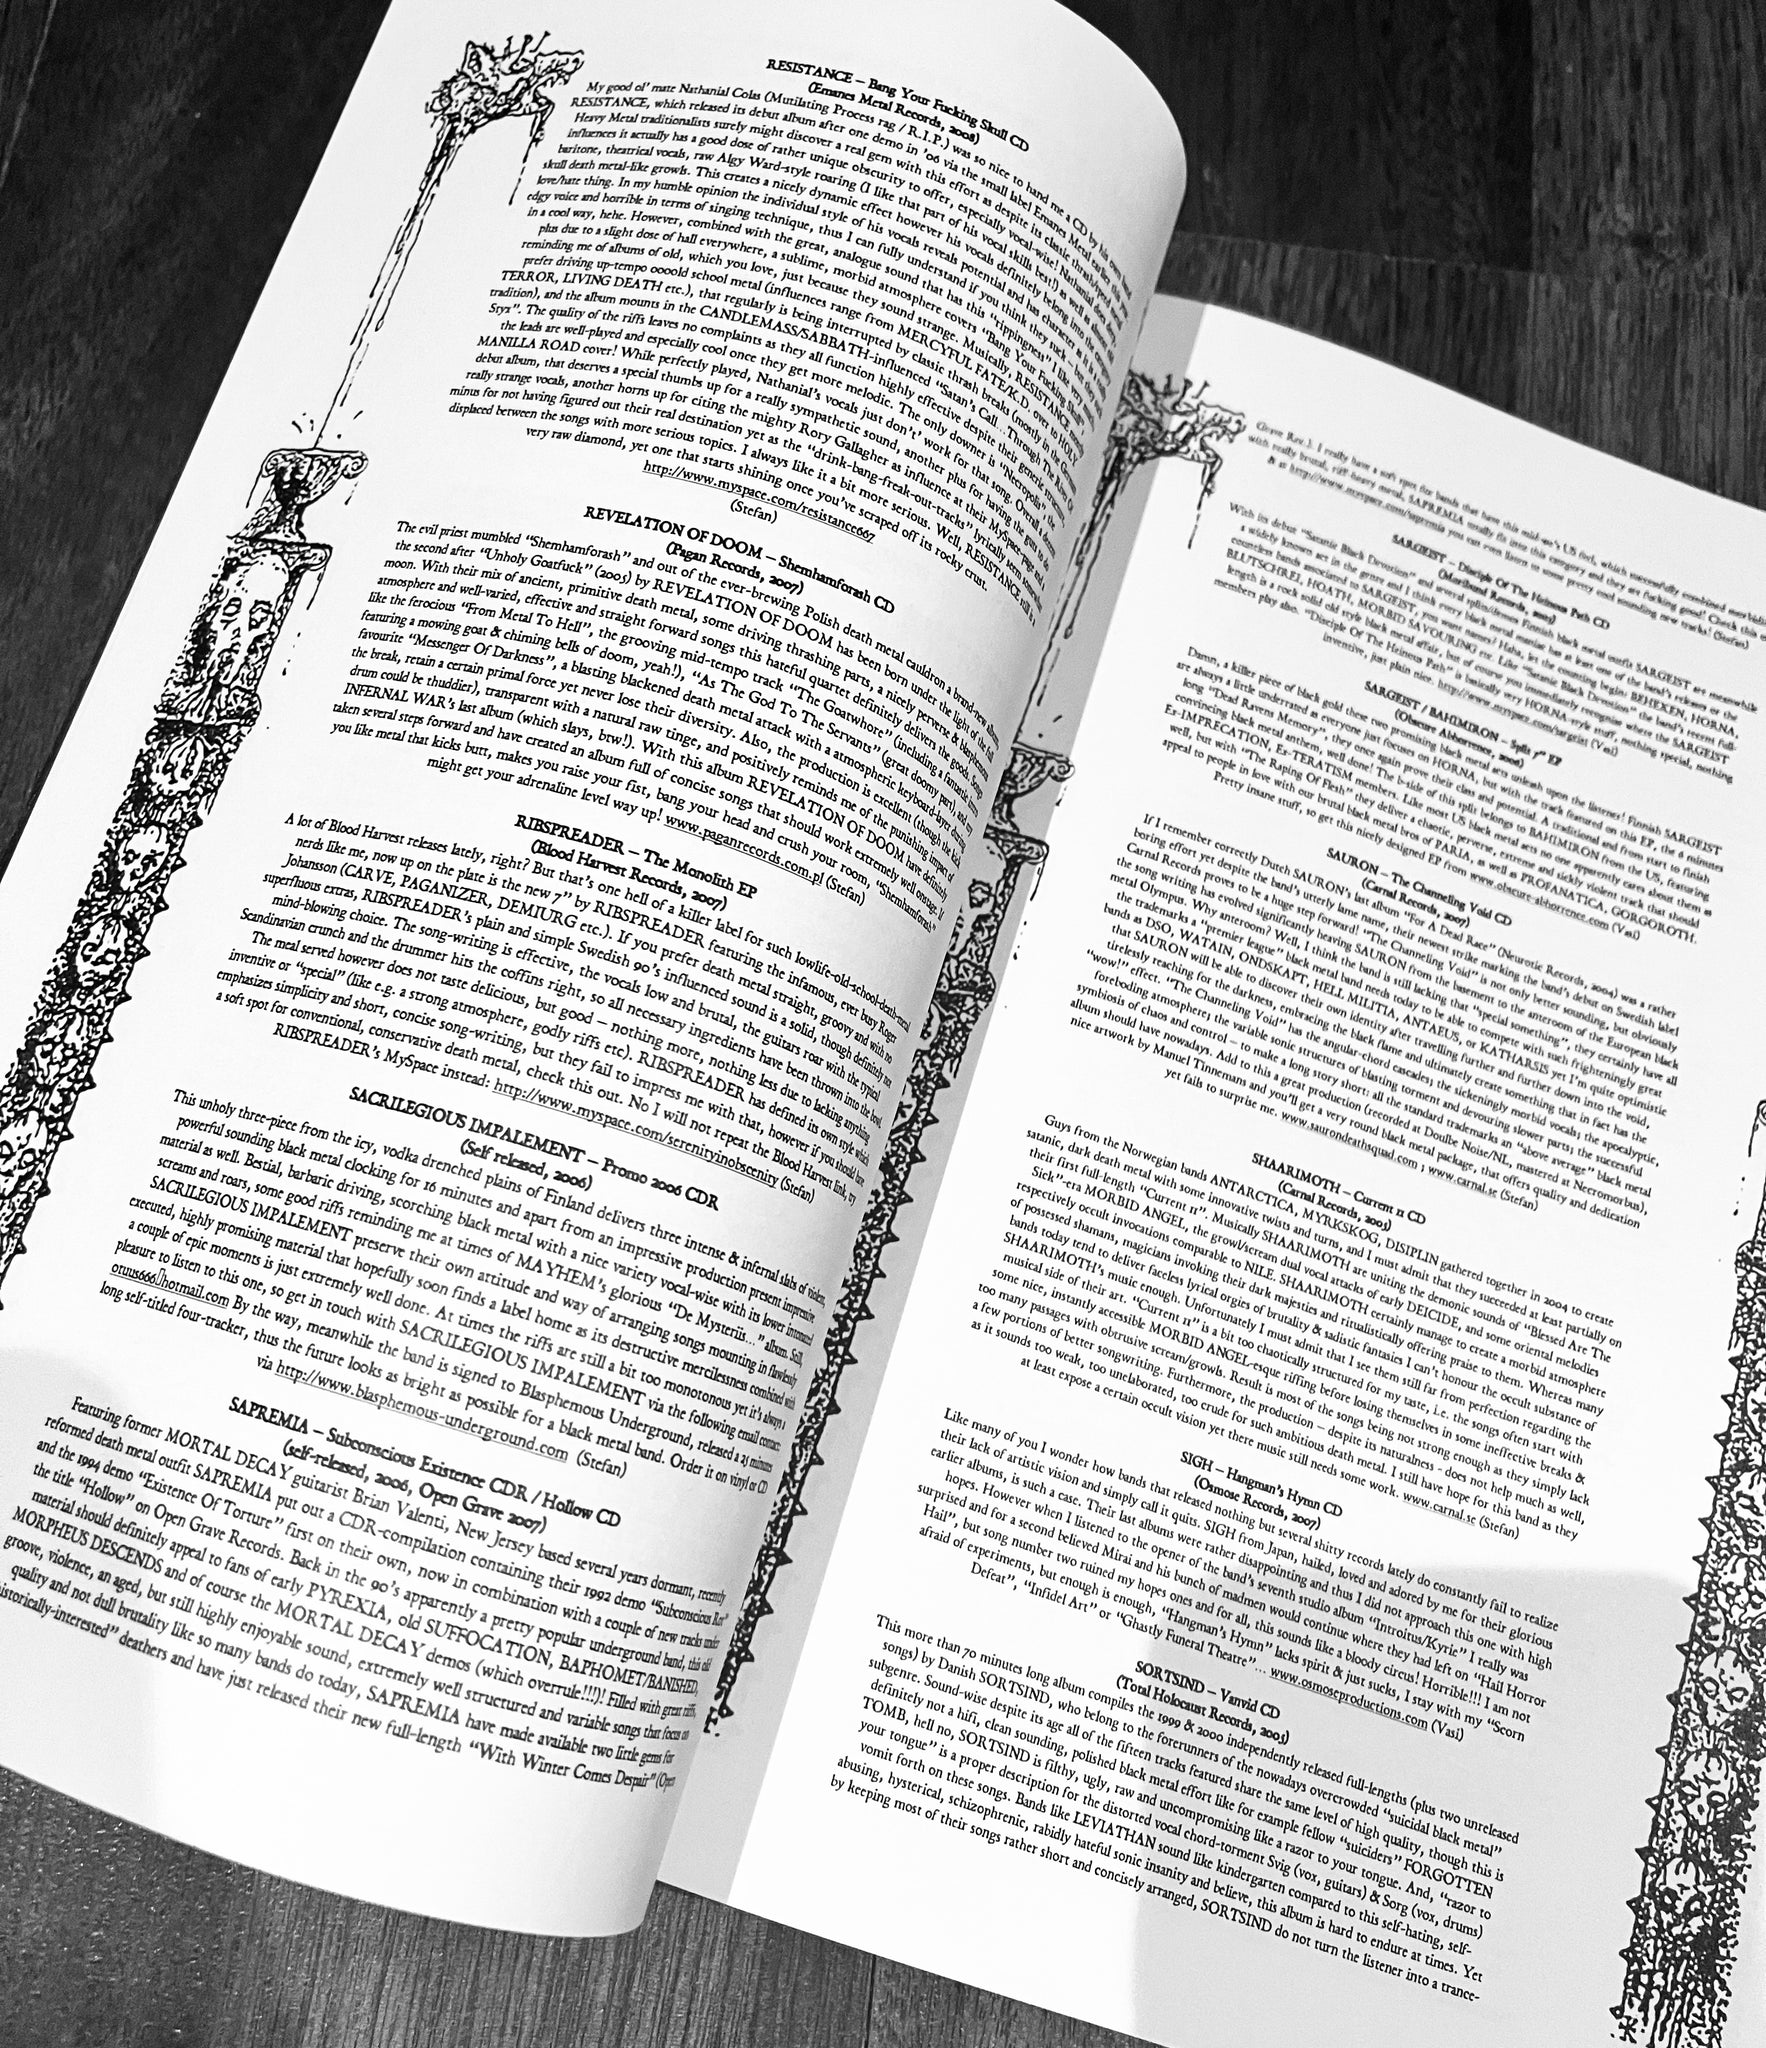 RESISTANCE – Bang Your Fucking Skull CD
(Emanes Metal Records, 2008)
My good ol' mate Nathanial Colas (Mutilating Process rag / R.I.P.) was so nice to hand me a CD by his own band
RESISTANCE, which released its debut album after one demo in '06 via the small label Emanes Metal earlier this year.
Heavy Metal traditionalists surely might discover a real gem with this effort as despite its classic thrash/speed metal
influences it actually has a good dose of rather unique obscurity to offer, especially vocal-wise! Nathanial does
baritone, theatrical vocals, raw Algy Ward-style roaring (I like that part of his vocal skills best!) as well as
skull death metal-like growls. This creates a nicely dynamic effect however his vocals definitely belong into the category
love/hate thing. In my humble opinion the individual style of his vocals reveals potential and has character as it is a
edgy voice and horrible in terms of singing technique, thus I can fully understand if you think they suck – but they
in a cool way, hehe. However, combined with the great, analogue sound that has this "rippingness" I like very much
plus due to a slight dose of hall everywhere, a sublime, morbid atmosphere covers "Bang Your Fucking Skull",
reminding me of albums of old, which you love, just because they sound strange. Musically, RESISTANCE mostly
prefer driving up-tempo oooold school metal (influences range from MERCYFUL FATE/K.D. over to HOLY
TERROR, LIVING DEATH etc.), that regularly is being interrupted by classic thrash breaks (mostly in the German
tradition), and the album mounts in the CANDLEMASS/SABBATH-influenced "Satan's Call…Through The River Of
Styx". The quality of the riffs leaves no complaints as they all function highly effective despite their generic structure,
the leads are well-played and especially cool once they get more melodic. The only downer is "Necropolis", the
MANILLA ROAD cover! While perfectly played, Nathanial's vocals just don't' work for that song. Overall a decent
debut album, that deserves a special thumbs up for a really sympathetic sound, another plus for having the guts to do
really strange vocals, another horns up for citing the mighty Rory Gallagher as influence at their MySpace-page and
minus for not having figured out their real destination yet as the "drink-bang-freak-out-tracks" lyrically seem somewhat
displaced between the songs with more serious topics. I always like it a bit more serious. Well, RESISTANCE still is a
very raw diamond, yet one that starts shining once you've scraped off its rocky crust.
http://www.myspace.com/resistance667
(Stefan)
REVELATION OF DOOM – Shemhamforash CD
(Pagan Records, 2007)
The evil priest mumbled "Shemhamforash" and out of the ever-brewing Polish death metal cauldron a brand-new album,
the second after "Unholy Goatfuck" (2005) by REVELATION OF DOOM has been born under the light of the full
moon. With their mix of ancient, primitive death metal, some driving thrashing parts, a nicely perverse & blasphemous
atmosphere and well-varied, effective and straight forward songs this hateful quartet definitely delivers the goods. Songs
like the ferocious "From Metal To Hell", the grooving mid-tempo track "The Goatwhore" (including a fantastic intro
featuring a mowing goat & chiming bells of doom, yeah!), "As The God To The Servants" (great doomy part), and my
favourite "Messenger Of Darkness", a blasting blackened death metal attack with a atmospheric keyboard-layer during
the break, retain a certain primal force yet never lose their diversity. Also, the production is excellent (though the kick
drum could be thuddier), transparent with a natural raw tinge, and positively reminds me of the punishing impact of
INFERNAL WAR's last album (which slays, btw!). With this album REVELATION OF DOOM have definitely
taken several steps forward and have created an album full of concise songs that should work extremely well onstage. If
you like metal that kicks butt, makes you raise your fist, bang your head and crush your room, "Shemhamforash"
might get your adrenaline level way up! www.paganrecords.com.pl (Stefan)
RIBSPREADER – The Monolith EP
(Blood Harvest Records, 2007)
A lot of Blood Harvest releases lately, right? But that's one hell of a killer label for such lowlife-old-school-death-metal
nerds like me, now up on the plate is the new 7" by RIBSPREADER featuring the infamous, ever busy Roger
Johansson (CARVE, PAGANIZER, DEMIURG etc.). If you prefer death metal straight, groovy and with no
superfluous extras, RIBSPREADER's plain and simple Swedish 90's influenced sound is a solid, though definitely not
mind-blowing choice. The song-writing is effective, the vocals low and brutal, the guitars roar with the typical
Scandinavian crunch and the drummer hits the coffins right, so all necessary ingredients have been thrown into the bowl.
The meal served however does not taste delicious, but good – nothing more, nothing less due to lacking anything
inventive or "special" (like e.g. a strong atmosphere, godly riffs etc). RIBSPREADER has defined its own style which
emphasizes simplicity and short, concise song-writing, but they fail to impress me with that, however if you should have
a soft spot for conventional, conservative death metal, check this out. No I will not repeat the Blood Harvest link, try
RIBSPREADER's MySpace instead: http://www.myspace.com/serenityinobscenity (Stefan)
SACRILEGIOUS IMPALEMENT – Promo 2006 CDR
(Self released, 2006)
This unholy three-piece from the icy, vodka drenched plains of Finland delivers three intense & infernal slabs of violent,
powerful sounding black metal clocking for 16 minutes and apart from an impressive production present impressive
material as well. Bestial, barbaric driving, scorching black metal with a nice variety vocal-wise with its lower intonated
screams and roars, some good riffs reminding me at times of MAYHEM's glorious "De Mysteriis…" album. Still,
SACRILEGIOUS IMPALEMENT preserve their own attitude and way of arranging songs mounting in flawlessly
executed, highly promising material that hopefully soon finds a label home as its destructive mercilessness combined with
a couple of epic moments is just extremely well done. At times the riffs are still a bit too monotonous yet it's always a
pleasure to listen to this one, so get in touch with SACRILEGIOUS IMPALEMENT via the following email contact:
otuus666▯hotmail.com By the way, meanwhile the band is signed to Blasphemous Underground, released a 25 minutes
long self-titled four-tracker, thus the future looks as bright as possible for a black metal band. Order it on vinyl or CD
via http://www.blasphemous-underground.com (Stefan)
SAPREMIA – Subconscious Existence CDR / Hollow CD
(self-released, 2006, Open Grave 2007)
Featuring former MORTAL DECAY guitarist Brian Valenti, New Jersey based several years dormant, recently
reformed death metal outfit SAPREMIA put out a CDR-compilation containing their 1992 demo "Subconscious Rot"
and the 1994 demo "Existence Of Torture" first on their own, now in combination with a couple of new tracks under
the title "Hollow" on Open Grave Records. Back in the 90's apparently a pretty popular underground band, this old
material should definitely appeal to fans of early PYREXIA, old SUFFOCATION, BAPHOMET/BANISHED,
MORPHEUS DESCENDS and of course the MORTAL DECAY demos (which overrule!!!)! Filled with great riffs,
groove, violence, an aged, but still highly enjoyable sound, extremely well structured and variable songs that focus on
quality and not dull brutality like so many bands do today, SAPREMIA have made available two little gems for
historically-interested" deathers and have just released their new full-length "With Winter Comes Despair" (Open
Grave Rec.). I really have a soft spot for bands that have this mid-90's US feel, which successfully combined morbidity
with really brutal, riff heavy metal, SAPREMIA totally fit into this category and they are fucking good! Check this out
& at http://www.myspace.com/sapremia you can even listen to some pretty cool sounding new tracks! (Stefan)
SARGEIST – Disciple Of The Heinous Path CD
(Moribund Records, 2005)
With its debut "Satanic Black Devotion" and several splits/demos Finnish black metal outfit SARGEIST are meanwhile
a widely known act in the genre and I think every black metal maniac has at least one of the band's releases or the
countless bands associated to SARGEIST, you want names? Haha, let the counting begin: BEHEXEN, HORNA,
BLUTSCHREI, HOATH, MORBID SAVOURING etc. Like "Satanic Black Devotion" the band's recent full-
length is a rock solid old style black metal affair, but of course you immediately recognise where the SARGEIST
members play also. "Disciple Of The Heinous Path" is basically very HORNA-style stuff, nothing special, nothing
inventive, just plain nice. http://www.myspace.com/sargeist (Vasi)
SARGEIST / BAHIMIRON – Split 7" EP
(Obscure Abhorrence, 2006)
Damn, a killer piece of black gold these two promising black metal acts unleash upon the listener! Finnish SARGEIST
are always a little underrated as everyone just focuses on HORNA, but with the track featured on this EP, the 6 minutes
long "Dead Ravens Memory", they once again prove their class and potential. A traditional and from start to finish
convincing black metal anthem, well done! The b-side of this split belongs to BAHIMIRON from the US, featuring
Ex-IMPRECATION, Ex-TERATISM members. Like most US black metal acts no one apparently cares about them as
well, but with "The Raping Of Flesh" they deliver a chaotic, perverse, extreme and sickly violent track that should
appeal to people in love with our brutal black metal bros of PARIA, as well as PROFANATICA, GORGOROTH.
Pretty insane stuff, so get this nicely designed EP from www.obscure-abhorrence.com (Vasi)
SAURON – The Channeling Void CD
(Carnal Records, 2007)
If I remember correctly Dutch SAURON's last album "For A Dead Race" (Neurotic Records, 2004) was a rather
boring effort yet despite the band's utterly lame name, their newest strike marking the band's debut on Swedish label
Carnal Records proves to be a huge step forward! "The Channeling Void" is not only better sounding, but obviously
the song writing has evolved significantly heaving SAURON from the basement to the anteroom of the European black
metal Olympus. Why anteroom? Well, I think the band is still lacking that "special something", they certainly have all
the trademarks a "premier league" black metal band needs today to be able to compete with such frighteningly great
bands as DSO, WATAIN, ONDSKAPT, HELL MILITIA, ANTAEUS, or KATHARSIS yet I'm quite optimistic
that SAURON will be able to discover their own identity after travelling further and further down into the void,
tirelessly reaching for the darkness, embracing the black flame and ultimately create something that in fact has the
"wow!" effect. "The Channeling Void" has the angular-chord cascades; the sickeningly morbid vocals; the apocalyptic,
foreboding atmosphere; the variable sonic structures of blasting torment and devouring slower parts; the successful
symbiosis of chaos and control – to make a long story short: all the standard trademarks an "above average" black metal
album should have nowadays. Add to this a great production (recorded at Doulbe Noise/NL, mastered at Necromorbus),
nice artwork by Manuel Tinnemans and you'll get a very round black metal package, that offers quality and dedication
yet fails to surprise me. www.saurondeathsquad.com ; www.carnal.se (Stefan)
SHAARIMOTH – Current 11 CD
(Carnal Records, 2005)
Guys from the Norwegian bands ANTARCTICA, MYRKSKOG, DISIPLIN gathered together in 2004 to create
satanic, dark death metal with some innovative twists and turns, and I must admit that they succeeded at least partially on
their first full-length "Current 11". Musically SHAARIMOTH are uniting the demonic sounds of "Blessed Are The
Sick"-era MORBID ANGEL, the growl/scream dual vocal attacks of early DEICIDE, and some oriental melodies
respectively occult invocations comparable to NILE. SHAARIMOTH certainly manage to create a morbid atmosphere
of possessed shamans, magicians invoking their dark majesties and ritualistically offering praise to them. Whereas many
bands today tend to deliver faceless lyrical orgies of brutality & sadistic fantasies I can't honour the occult substance of
SHAARIMOTH's music enough. Unfortunately I must admit that I see them still far from perfection regarding the
musical side of their art. "Current 11" is a bit too chaotically structured for my taste, i.e. the songs often start with
some nice, instantly accessible MORBID ANGEL-esque riffing before losing themselves in some ineffective breaks &
too many passages with obtrusive scream/growls. Result is most of the songs being not strong enough as they simply lack
a few portions of better songwriting. Furthermore, the production – despite its naturalness - does not help much as well,
as it sounds too weak, too unelaborated, too crude for such ambitious death metal. I still have hope for this band as they
at least expose a certain occult vision yet there music still needs some work. www.carnal.se (Stefan)
SIGH – Hangman's Hymn CD
(Osmose Records, 2007)
Like many of you I wonder how bands that released nothing but several shitty records lately do constantly fail to realize
their lack of artistic vision and simply call it quits. SIGH from Japan, hailed, loved and adored by me for their glorious
earlier albums, is such a case. Their last albums were rather disappointing and thus I did not approach this one with high
hopes. However when I listened to the opener of the band's seventh studio album "Introitus/Kyrie" I really was
surprised and for a second believed Mirai and his bunch of madmen would continue where they had left on "Hail Horror
Hail", but song number two ruined my hopes ones and for all, this sounds like a bloody circus! Horrible!!! I am not
afraid of experiments, but enough is enough, "Hangman's Hymn" lacks spirit & just sucks, I stay with my "Scorn
Defeat", "Infidel Art" or "Ghastly Funeral Theatre"… www.osmoseproductions.com (Vasi)
SORTSIND – Vanvid CD
(Total Holocaust Records, 2005)
This more than 70 minutes long album compiles the 1999 & 2000 independently released full-lengths (plus two unreleased
songs) by Danish SORTSIND, who belong to the forerunners of the nowadays overcrowded "suicidal black metal"
subgenre. Sound-wise despite its age all of the fifteen tracks featured share the same level of high quality, though this is
definitely not a hifi, clean sounding, polished black metal effort like for example fellow "suiciders" FORGOTTEN
TOMB, hell no, SORTSIND is filthy, ugly, raw and uncompromising like a razor to your tongue. And, "razor to
your tongue" is a proper description for the distorted vocal chord-torment Svig (vox, guitars) & Sorg (vox, drums)
vomit forth on these songs. Bands like LEVIATHAN sound like kindergarten compared to this self-hating, self-
abusing, hysterical, schizophrenic, rabidly hateful sonic insanity and believe, this album is hard to endure at times. Yet
by keeping most of their songs rather short and concisely arranged, SORTSIND do not turn the listener into a trance-